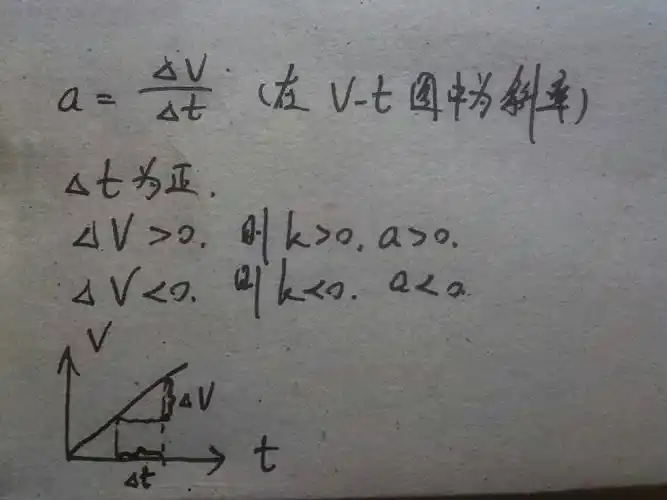 a = ΔV/Δt (在 V-t 图中为斜率)
Δt为正.
ΔV>0. 则k>0. a>0.
ΔV<0. 则k<0. a<0
V
ΔV
t
Δt